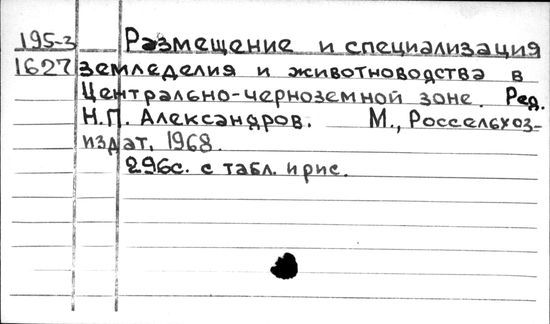 195-3 Размещение и специализация
1627 земледелия и животноводства в
Центрально-черноземной зоне. Ред.
Н.П. Александров. М., Россельхоз-
издат, 1968.
296с. с табл. и рис.